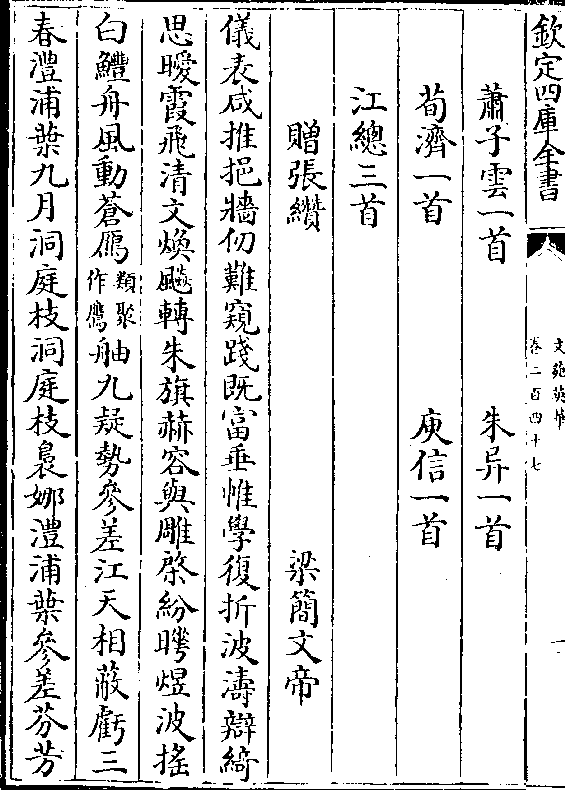 欽定四庫全書
文苑英華
卷二百四十七
一
蕭子雲一首 朱异一首
荀濟一首 庾信一首
江總三首
贈張纘 梁簡文帝
儀表咸推挹牆仞難窺踐既富垂帷學復折波濤辯綺
思曖霞飛清文煥飇轉朱旗赫容與雕棨紛聘煜波搖
白鱧舟風動蒼鴈類聚作鷹舳九疑勢參差江天相蔽虧三
春澧浦葉九月洞庭枝洞庭枝裊娜澧浦葉參差芬芳